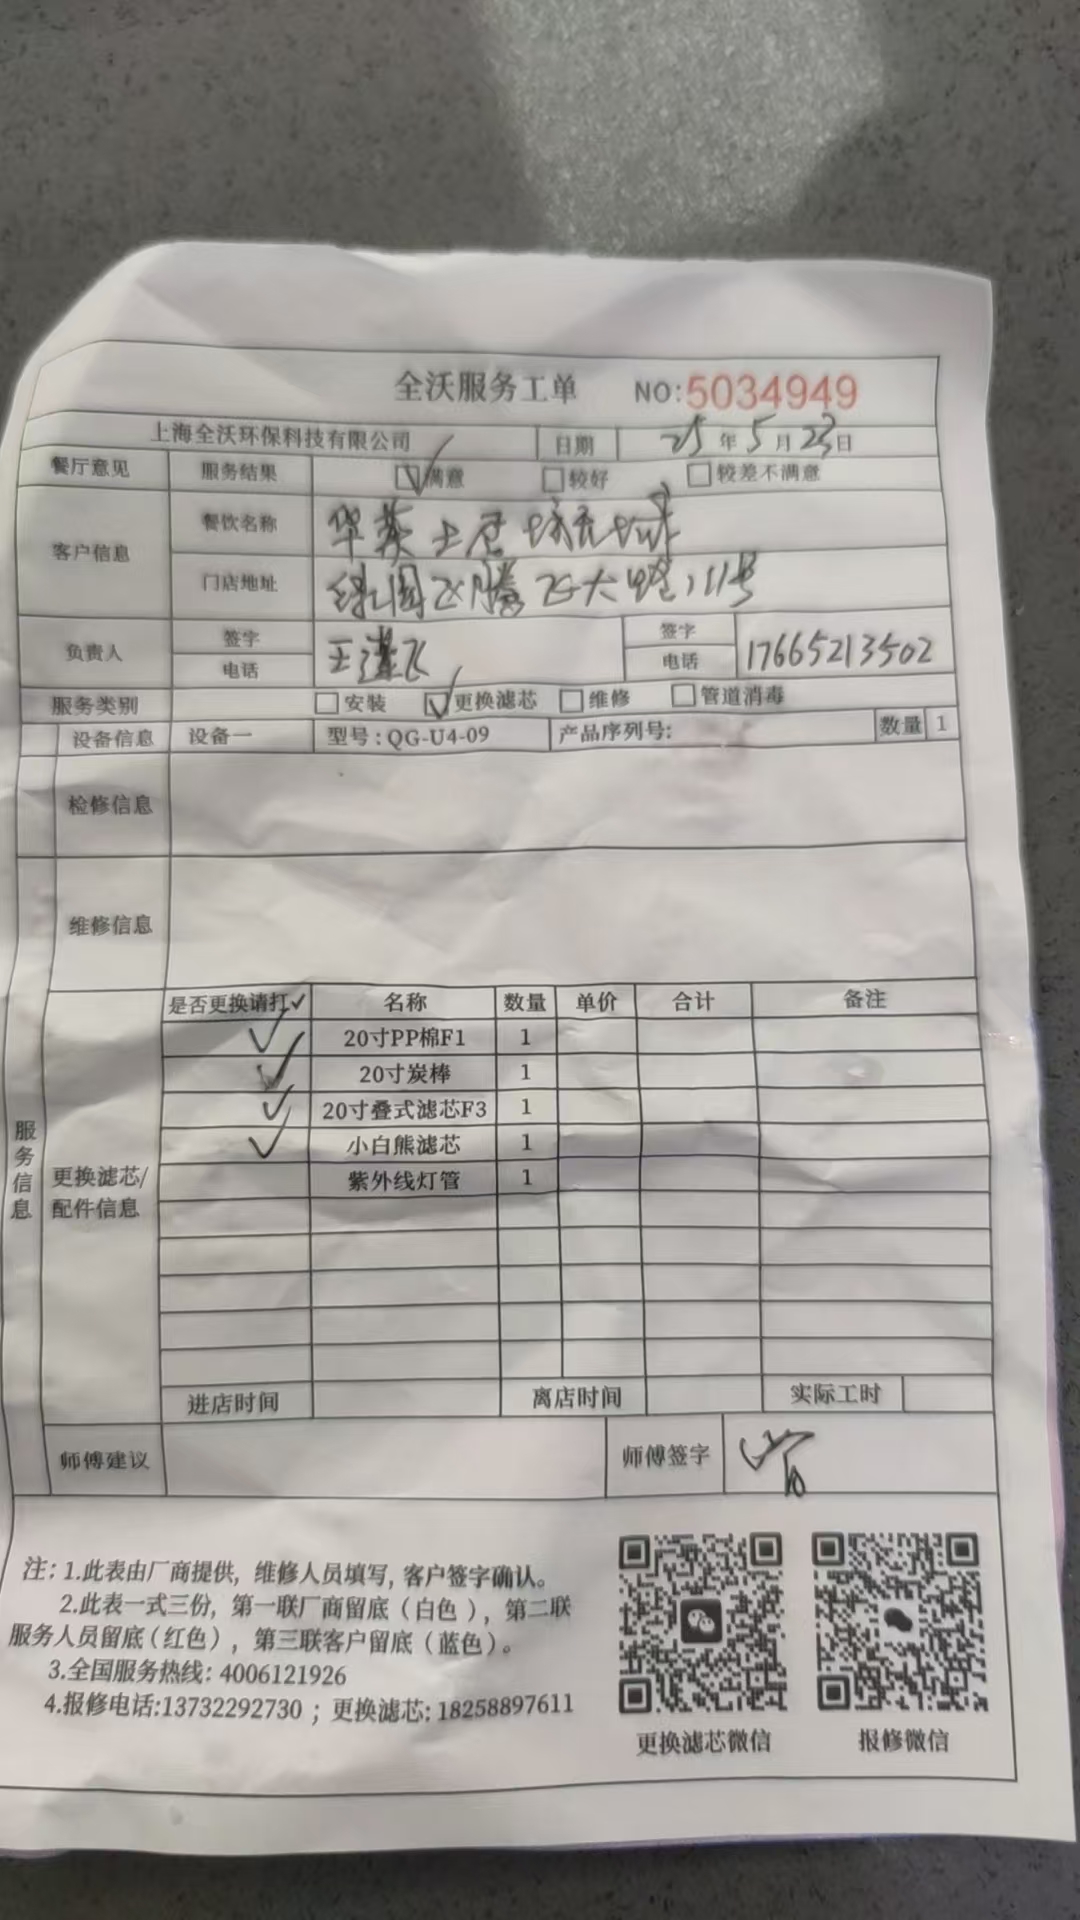 全沃服务工单 NO:5034949
上海全沃环保科技有限公司 日期 25年5月23日
餐厅意见 服务结果 ☑满意 □较好 □较差不满意
客户信息 餐饮名称 华莱士
门店地址 绿园 飞 大 111号
负责人 签字 王 飞 签字
电话 电话 17665213502
服务类别 □安装 ☑更换滤芯 □维修 □管道消毒
设备信息 设备一 型号:QG-U4-09 产品序列号: 数量 1
检修信息
维修信息
服务信息
更换滤芯/配件信息
是否更换请打✓ 名称 数量 单价 合计 备注
✓ 20寸PP棉F1 1
✓ 20寸炭棒 1
✓ 20寸叠式滤芯F3 1
✓ 小白熊滤芯 1
紫外线灯管 1
进店时间 离店时间 实际工时
师傅建议 师傅签字
注：1.此表由厂商提供，维修人员填写，客户签字确认。
2.此表一式三份，第一联厂商留底（白色），第二联
服务人员留底（红色），第三联客户留底（蓝色）。
3.全国服务热线：4006121926
4.报修电话:13732292730；更换滤芯: 18258897611
更换滤芯微信 报修微信